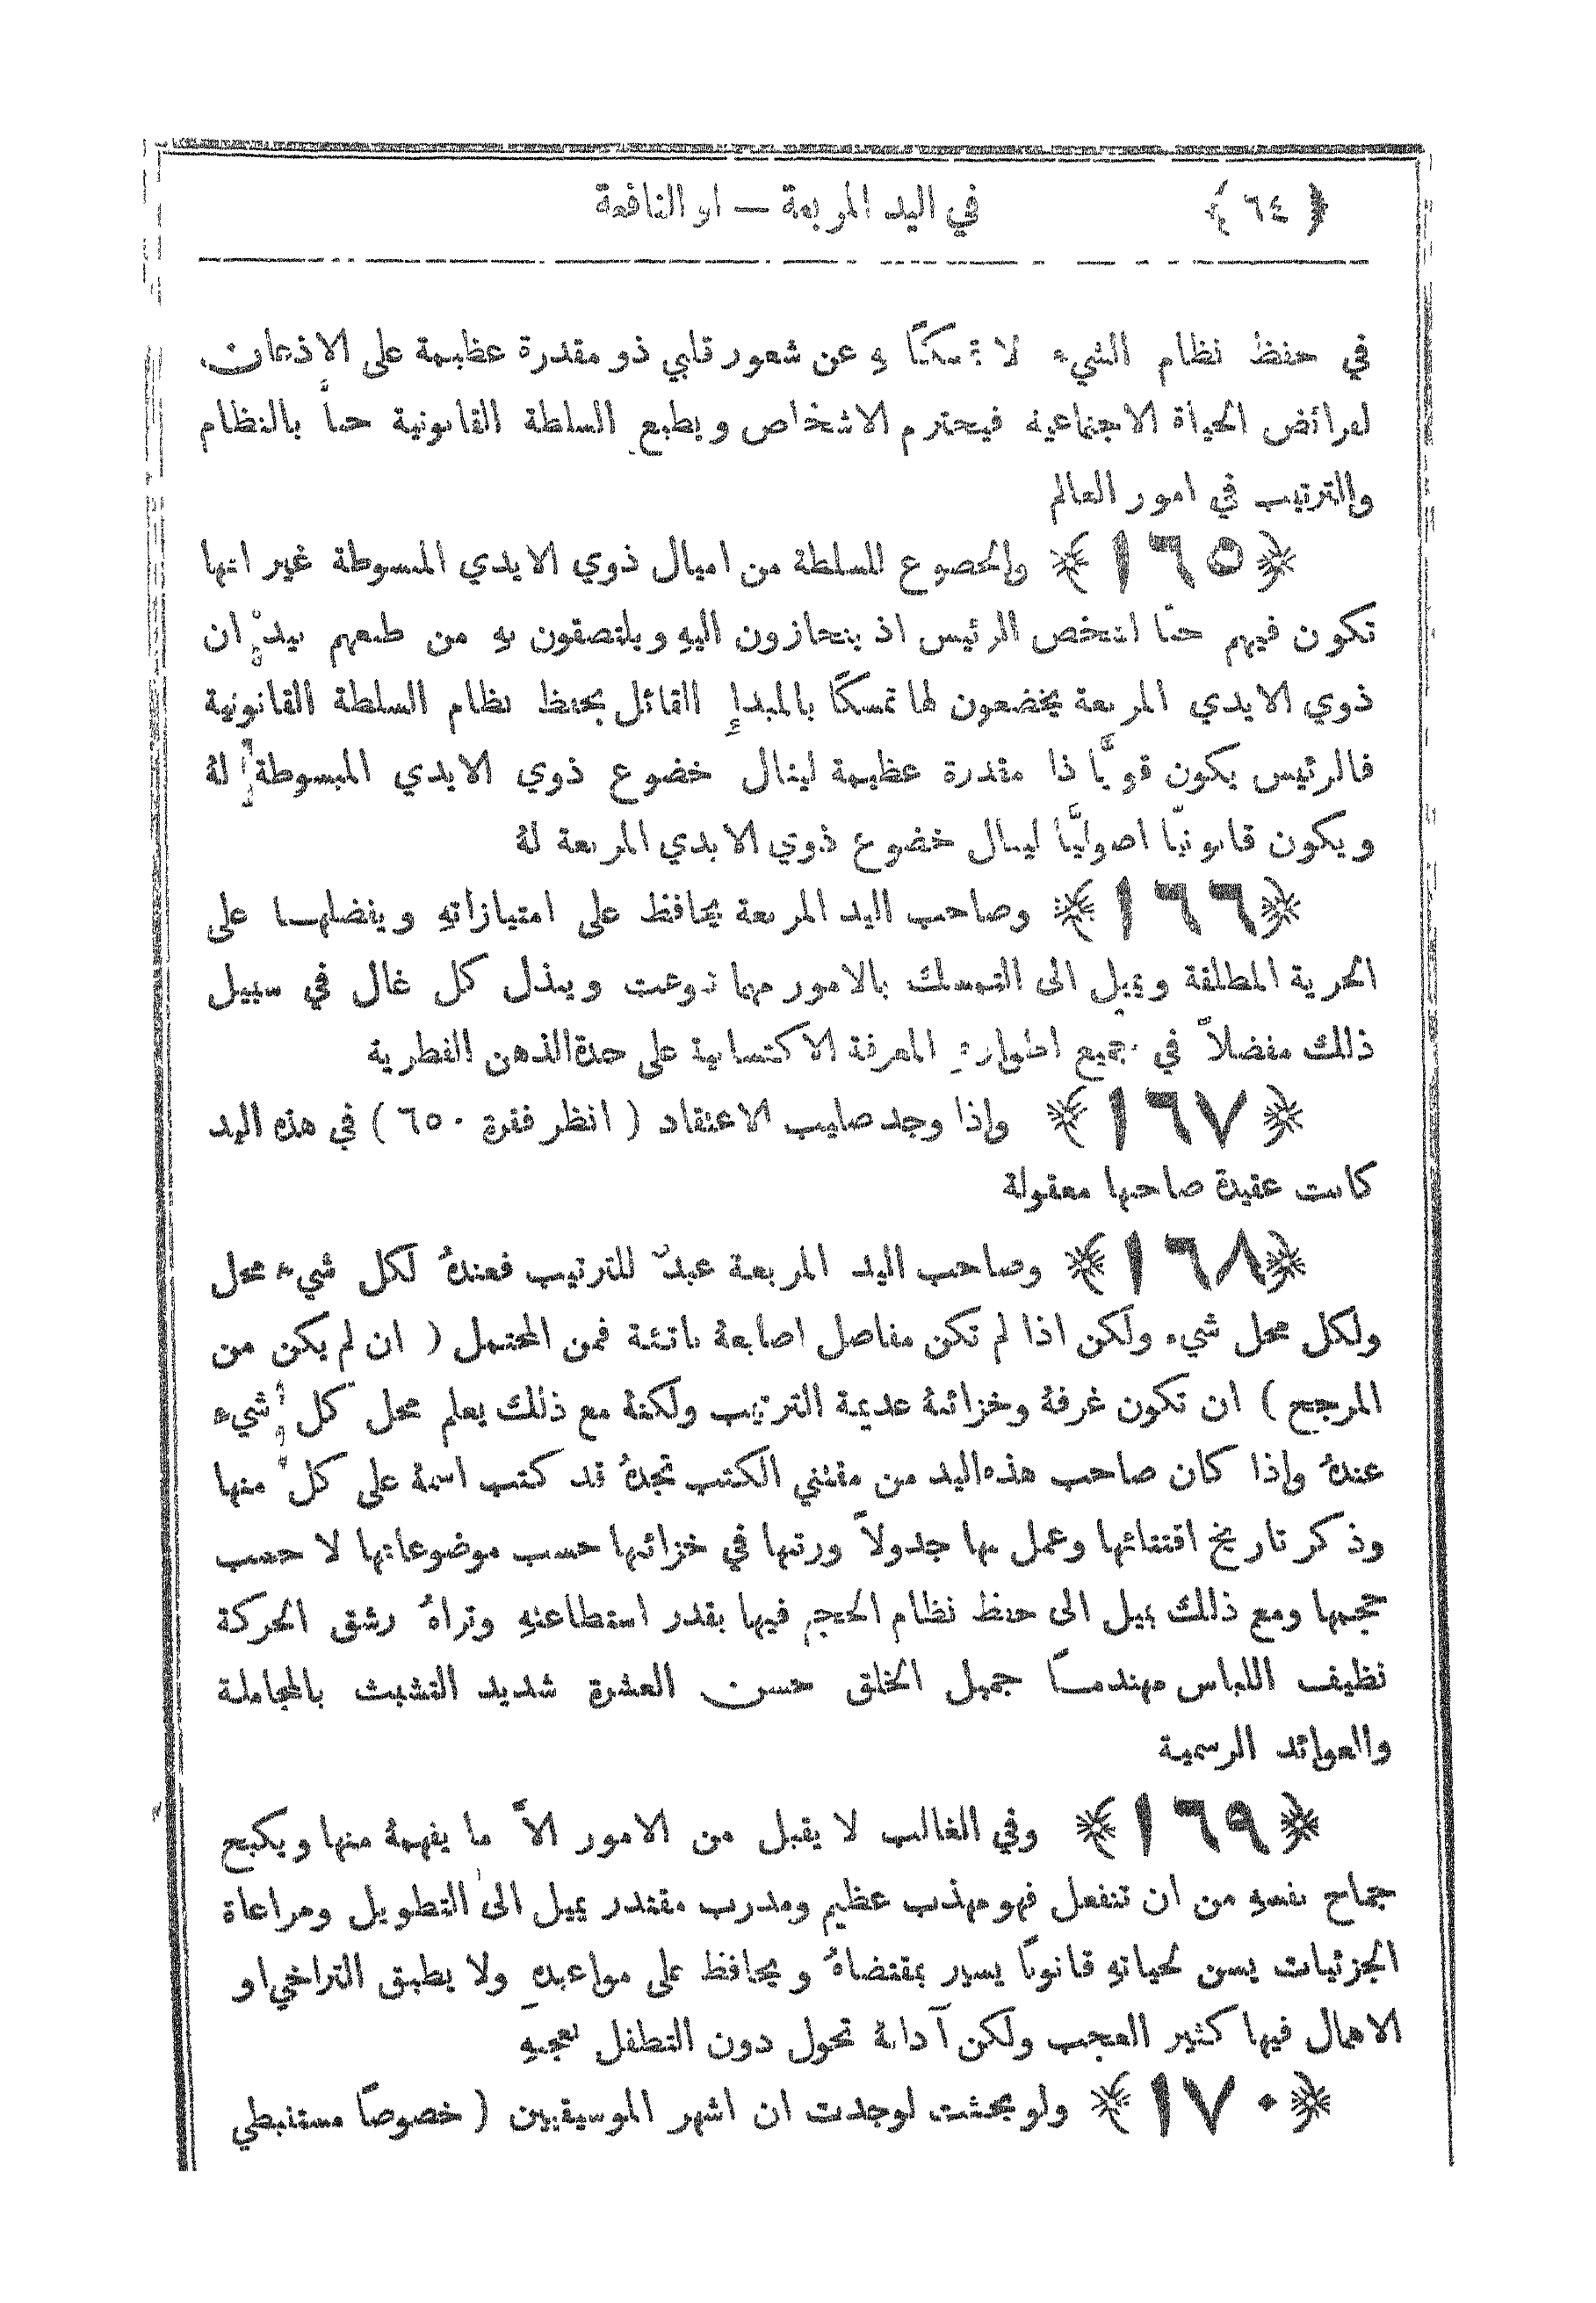 ﴿ ٦٤ ﴾ في اليد المربعة — او النافعة
في حفظ نظام الشيء لا تمسكًا بهِ عن شعور قلبي ذو مقدرة عظيمة على الاذعان
لفرائض الحياة الاجتماعية فيحترم الاشخاص ويطيع السلطة القانونية حبًّا بالنظام
والترتيب في امور العالم
﴿١٦٥﴾ والخضوع للسلطة من اميال ذوي الايدي المبسوطة غير انها
تكون فيهم حبًّا لشخص الرئيس اذ ينحازون اليهِ ويلتصقون بهِ من طبعهم بيد ان
ذوي الايدي المربعة يخضعون لها تمسكًا بالمبدإِ القائل بحفظ نظام السلطة القانونية
فالرئيس يكون قويًّا ذا مقدرة عظيمة لينال خضوع ذوي الايدي المبسوطة لهُ
ويكون قانونيًّا اصوليًّا لينال خضوع ذوي الايدي المربعة لهُ
﴿١٦٦﴾ وصاحب اليد المربعة يحافظ على امتيازاتهِ ويفضلها على
الحرية المطلقة ويميل الى التمسك بالامور مهما نوعت ويبذل كل غال في سبيل
ذلك مفضلاً في جميع اطوارهِ المعرفة الاكتسابية على حدة الذهن الفطرية
﴿١٦٧﴾ واذا وجد صليب الاعتقاد ( انظر فقرة ٦٥٠ ) في هذه اليد
كانت عقيدة صاحبها معقولة
﴿١٦٨﴾ وصاحب اليد المربعة عبدٌ للترتيب فعندهُ لكل شيء محل
ولكل محل شيء ولكن اذا لم تكن مفاصل اصابعهُ ناتئة فمن المحتمل ( ان لم يكن من
المرجح ) ان تكون غرفهُ وخزائنهُ عديمة الترتيب ولكنهُ مع ذلك يعلم محل كل شيء
عندهُ واذا كان صاحب هذه اليد من مقتني الكتب تجدهُ قد كتب اسمهُ على كلٍّ منها
وذكر تاريخ اقتنائها وعمل بها جدولاً ورتبها في خزائنها حسب موضوعاتها لا حسب
حجمها ومع ذلك يميل الى حفظ نظام الحجم فيها بقدر استطاعتهِ وتراهُ رشق الحركة
نظيف اللباس مهندمًا جميل الخلق حسن العشرة شديد التشبث بالمجاملة
والعوائد الرسمية
﴿١٦٩﴾ وفي الغالب لا يقبل من الامور الاَّ ما يفهمهُ منها ويكبح
جماح نفسهِ من ان تنفعل فهو مهذب عظيم ومدرب مقتدر يميل الى التطويل ومراعاة
الجزئيات يسن لحياتهِ قانونًا يسير بمقتضاهُ ويحافظ على مواعيدهِ ولا يطيق التراخي او
الاهمال فيها كثير العجب ولكن آدابهُ تحول دون التطفل بعجبهِ
﴿١٧٠﴾ ولو بحثت لوجدت ان اشهر الموسيقيين ( خصوصًا مستنبطي